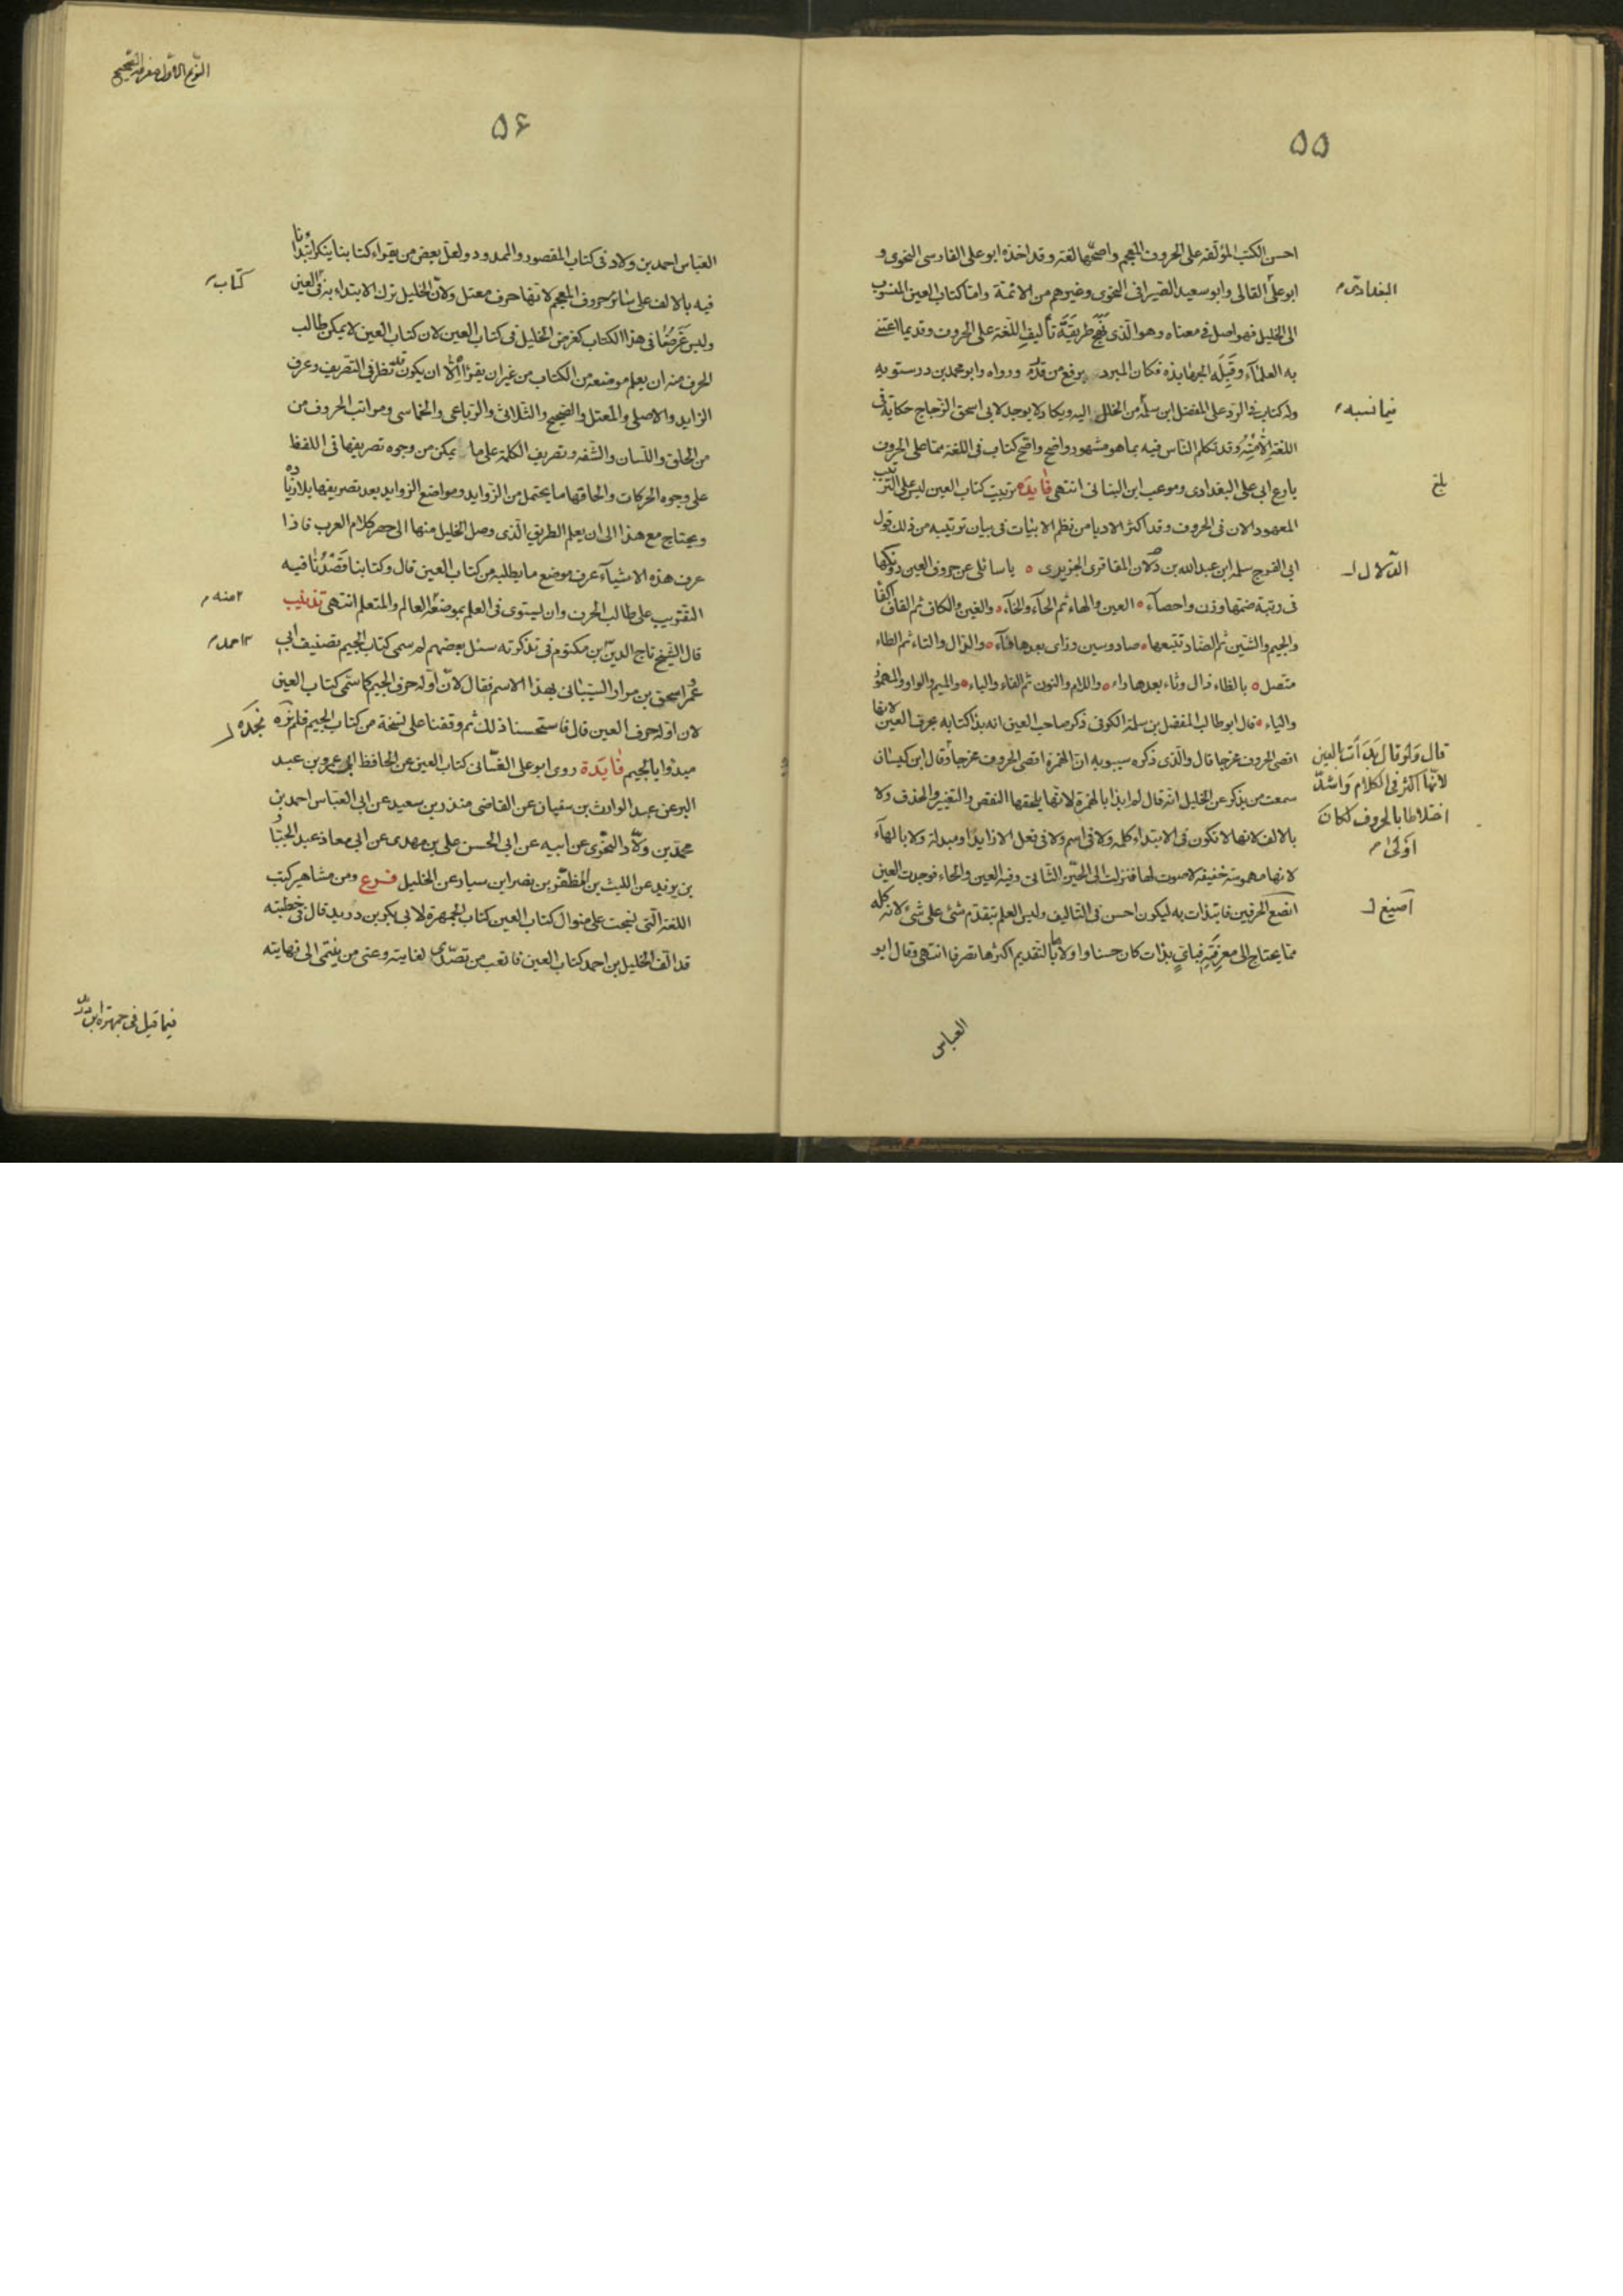 ٥٥
احسن الكتب المؤلفة على الحروف المعجم واصحها لغة وقد اخذه ابو على الفارسى النحوى و
ابو علىّ القالى وابو سعيد السّيرافى النحوى وغيرهم من الائمة وامّا كتاب العين المنسوب
البغدادى
الى الخليل فهو اصل فى معناه وهو الّذى نَهَجَ طريقَةَ تأليفِ اللّغة على الحروف وقديما اعتنے
به العلمآء وقَبِلَه الجهابذه فكان المبرد يرفع من قدره ورواه وابو محمد بن درستويه
وله كتاب فى الردّ على المفضل ابن سلمة من الخلل اليه ويكاد لا يوجد لابى اسحق الزّجاج حكاية فى
فيما نسبه
اللغة الّا مِنْهُ وقد تكلم الناس فيه بما هو مشهور واضح واصح كتاب فى اللغة ممّا على الحروف
بارع ابى على البغدادى وموعب ابن البنانى انتهى فايده ترتيب كتاب العين ليس على الترتيب
المعهود الان فى الحروف وقد اكثر الادبا من نظم الابيات فى بيان ترتيبه من ذلك قول
ابى الفرج سلمه ابن عبد الله بن دلان المعافرى الجزيرى ه يا سائلى عن حروف العين دونكها
الدّلال
فى رتبة ضمّها وزن واحصآء ه العين والهاء ثم الحآء والخآء ه والغين والكاف ثم القاف اكفا
والجيم والشّين ثم الضّاد تتبعها ه صاد وسين وزاى بعدها طآء ه والدّال والتاء ثم الظاء
متصل ه بالظاء ذال وثاء بعدها راء ه واللام والنون ثم الفاء والباء ه والميم والواو والمهموز
والياء ه قال ابو طالب المفضل بن سلمة الكوفى ذكر صاحب العين انه بدا كتابه بحرف العين لانها
اقصى الحروف مخرجا قال والّذى ذكره سيبويه انّ الهمزة اقصى الحروف مخرجا وقال ابن كيسان
قال وَلَو قال بَدَأتُ بالعين
لانّها اكثر فى الكلام وَاشدّ
اختلاطا بالحروف لكانَ
اَولى
سمعت من يذكر عن الخليل انّه قال لم ابدا بالهمزة لانّها يلحقها النقص والتغير والحذف ولا
بالالف لانها لا تكون فى الابتداء كله ولا فى اسم ولا فى فعل الا زايدًا او مبدلة ولا بالهآء
لانها مهموسة خفيفة لا صوت لها فنزلت الى الحيّز الثّانى وفيه العين والحاء فوجدت العين
انصع الحرفين فابتدات به ليكون احسن فى التاليف وليس العلم بتقدّم شئ على شئ لانه كله
ممّا يحتاج الى معرفَتِهِ فباىّ بدات كان حسنا واولاها بالتقديم اكثرها تصرفا انتهى وقال ابو
العباس
النّوع الاوّل معرفة الصّحيح
٥۶
العباس احمد بن ولاد فى كتاب المقصور والممدود ولعلّ بعض من يقراء كتابنا ينكر ابتداءنا
فيه بالالف على سائر حروف المعجم لانّها حرف معتل ولانّ الخليل ترك الابتداء به فى العين
كتاب
وليس غَرَضُنا فى هذا الكتاب كغرض الخليل فى كتاب العين لان كتاب العين لا يمكن طالب
الحرف منه ان يعلم موضعه من الكتاب من غير ان يقراه الّا ان يكون قد نظر فى التّصريف وعرف
الزايد والاصلى والمعتل والصّحيح والثّلاثى والرّباعى والخماسى ومراتب الحروف من
من الحلق واللسان والشّفه وتصريف الكلمة على ما يمكن من وجوه تصريفها فى اللفظ
على وجوه الحركات والحاقها ما يحتمل من الزّوايد ومواضع الزوايد بعد تصريفها بلا زيادة
ويحتاج مع هذا الى ان يعلم الطريق الّذى وصل الخليل منها الى حصر كلام العرب فاذا
عرف هذه الاشيآء عرف موضع ما يطلبه من كتاب العين قال وكتابنا قَصَدْنا فيه
التقريب على طالب الحرف وان يستوى فى العلم بموضعه العالم والمتعلم انتهى تذنيب
منه
قال الشّيخ تاج الدين ابن مكتوم فى تذكرته سئل بعضهم لم سمى كتاب الجيم تصنيف ابى
احمد
عمرو اسحق بن مرار الشّيبانى بهذا الاسم فقال لانّ اوّله حرف الجيم كما سمّى كتاب العين
لان اوّله حرف العين قال فاستحسنا ذلك ثم وقفنا على نسخة من كتاب الجيم فلم نره
نجدَه
مبدوًا بالجيم فايدة روى ابو على الغسّانى كتاب العين عن الحافظ ابى عمرو بن عبد
البر عن عبد الوارث بن سفيان عن القاضى منذر بن سعيد عن ابى العبّاس احمد بن
محمّد بن ولّاد النّحوى عن ابيه عن ابى الحسن على بن مهدى عن ابى معاذ عبد الجبّار
بن يزيد عن الليث بن المظفّر بن نصر ابن سيار عن الخليل فرع ومن مشاهير كتب
اللغة الّتى نسجت على منوال كتاب العين كتاب الجمهرة لابى بكر بن دريد قال فى خطبته
قد الّف الخليل بن احمد كتاب العين فاتعب من تصدّى لغايته وعنى من ينتمى الى نهايته
فيما قيل فى جمهرة ابن دريد